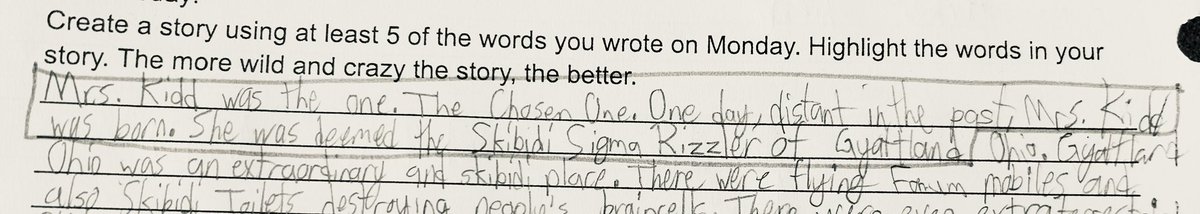 Create a story using at least 5 of the words you wrote on Monday. Highlight the words in your
story. The more wild and crazy the story, the better.
Mrs. Kidd was the one. The Chosen One. One day, distant in the past, Mrs. Kidd
was born. She was deemed the Skibidi Sigma Rizzler of Gyattland Ohio. Gyattland
Ohio was an extraordinary and skibidi place. There were flying Fanum mobiles and
also Skibidi Toilets destroying people's braincells. There were even